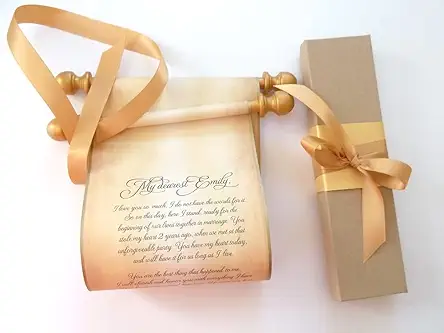 My dearest Emily,
I love you so much, I do not have the words for it.
So on this day, here I stand, ready for the
beginning of our lives together in marriage. You
stole my heart 2 years ago, when we met at that
unforgiveable party. You have my heart today,
and will have it for as long as I live.
You are the best thing that happened to me.
I will cherish and honor you and everything I have